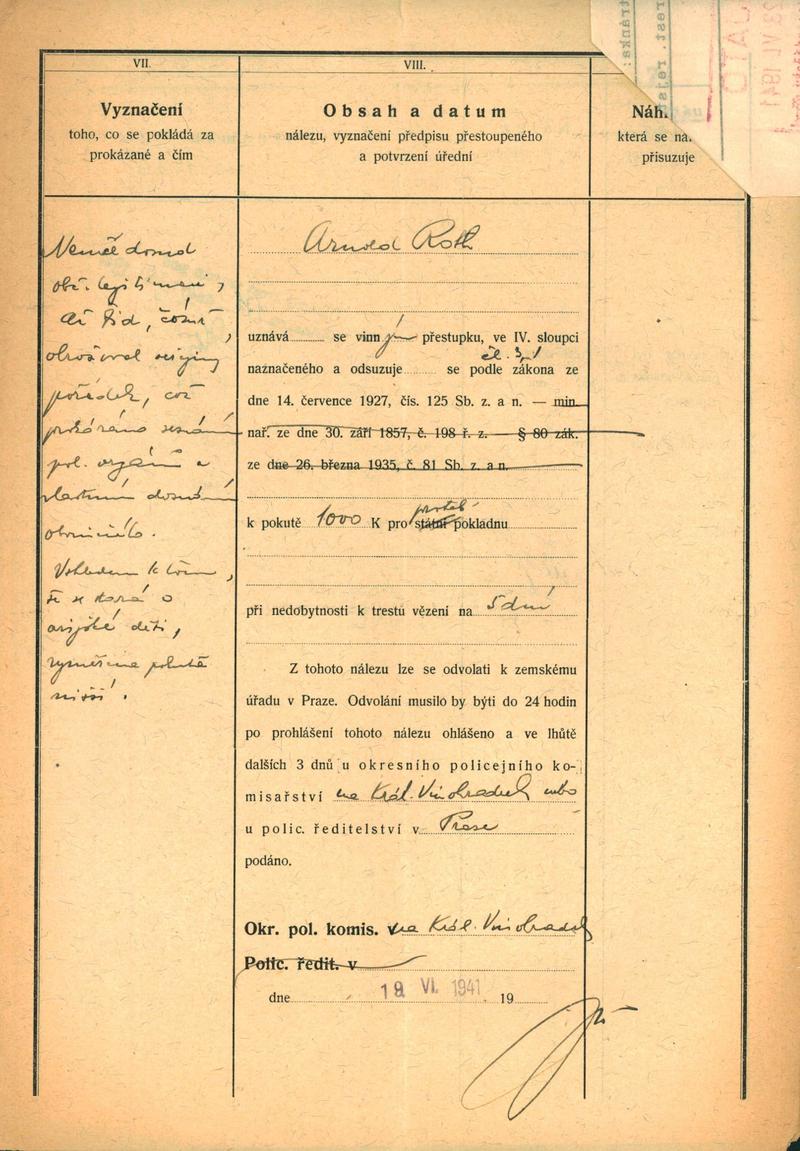 VII.
Vyznačení
toho, co se pokládá za
prokázané a čím
Neměl
obč. legitimaci,
ač žid, čímž
ohrožoval veřejný
pořádek, což
prokázáno
pol. orgánů a
vlastním doznáním
obviněného.
Vzhledem k tomu,
že se stará o
arijské děti,
vyměřena pokuta
nižší.
VIII.
Obsah a datum
nálezu, vyznačení předpisu přestoupeného
a potvrzení úřední
Arnold Roth
uznává se vinným přestupku, ve IV. sloupci
čl. 3,
naznačeného a odsuzuje se podle zákona ze
dne 14. července 1927, čís. 125 Sb. z. a n. — min.
nař. ze dne 30. září 1857, č. 198 ř. z. — § 80 zák.
ze dne 26. března 1935, č. 81 Sb. z. a n.
k pokutě 1000 K pro státní pokladnu
při nedobytnosti k trestu vězení na 5 dnů
Z tohoto nálezu lze se odvolati k zemskému
úřadu v Praze. Odvolání musilo by býti do 24 hodin
po prohlášení tohoto nálezu ohlášeno a ve lhůtě
dalších 3 dnů u okresního policejního ko-
misařství na Král. Vinohradech nebo
u polic. ředitelství v Praze
podáno.
Okr. pol. komis. v na Král. Vinohradech
Polic. ředit. v
dne 18 VI. 1941 19
Náh.
která se na.
přisuzuje